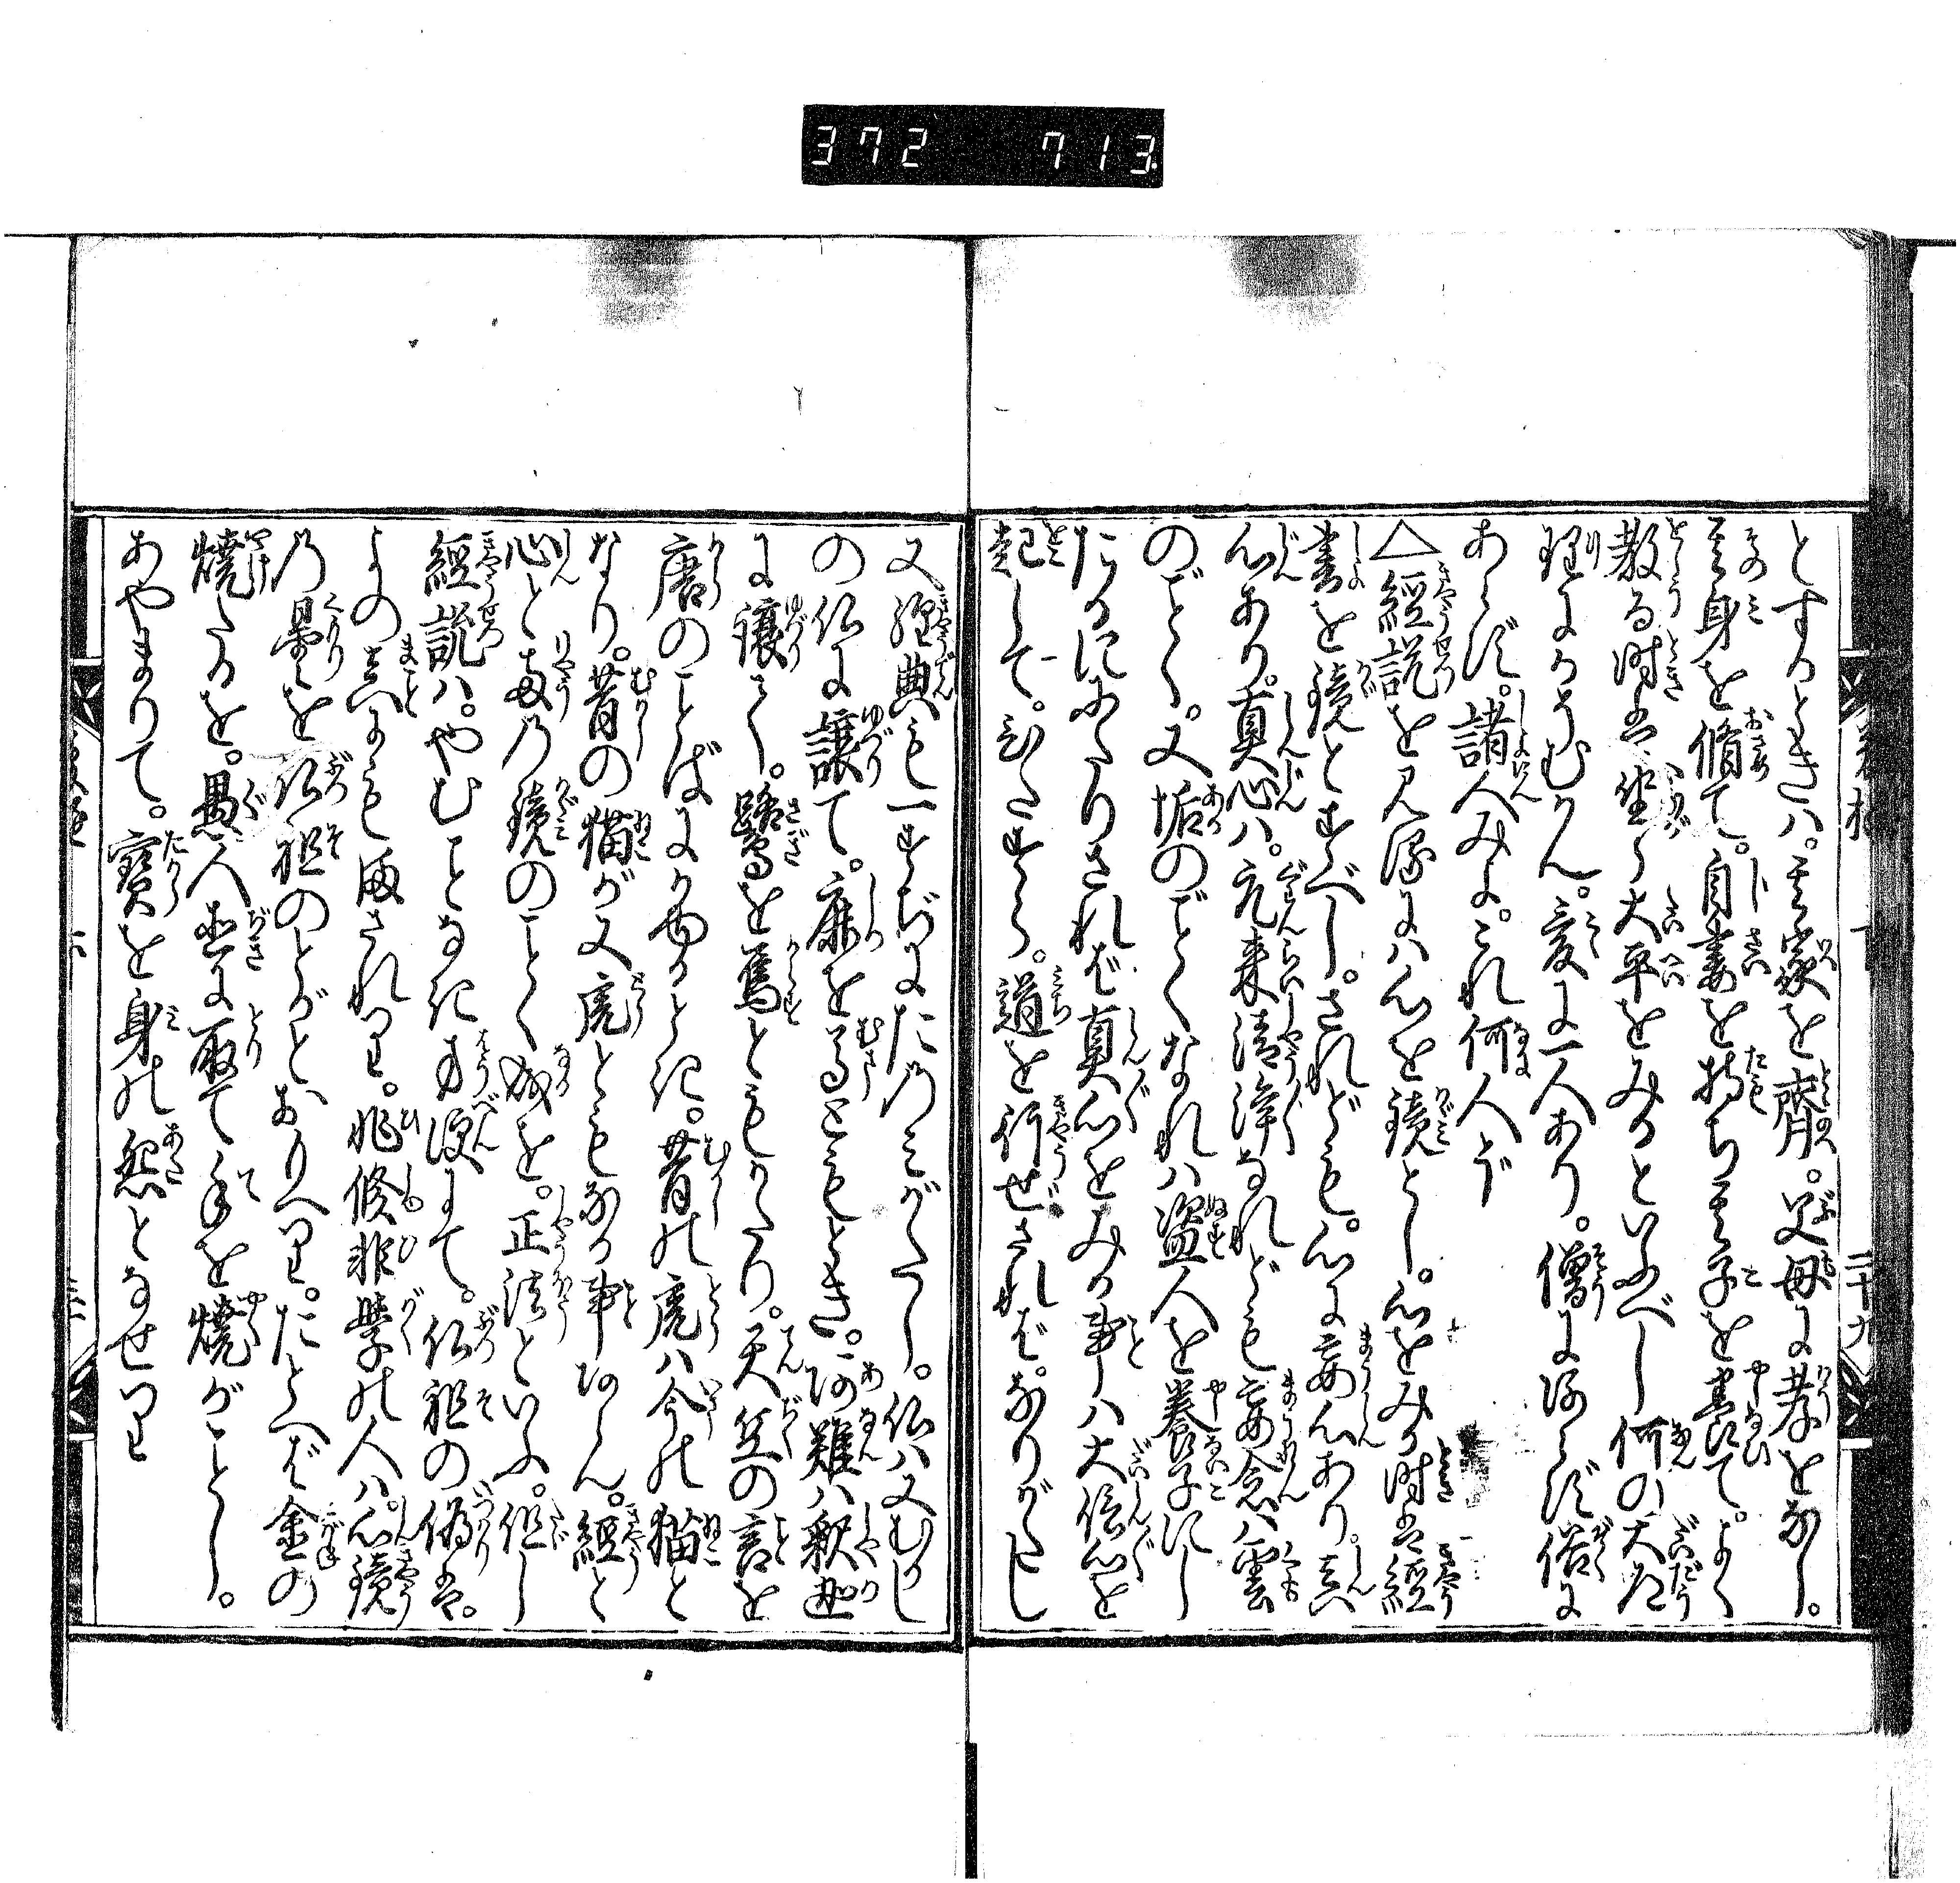 372 713
とするときハ。其家を齊。父母に孝をなし。
其身を脩て。自妻を持ち其子を養て。よく
教る時は坐して大平をみるといふべし何の天道
理にかそむかん。爰に一人あり。僧にあらず俗に
あらず。諸人みよ。これ何人ぞ
△經説を見るにハ心を鏡とし。心をみる時は經
書を鏡とすべし。されども。心に妄心あり。真
心あり。真心ハ。元来清浄なれども妄念ハ雲
のごとく。又垢のごとくなれハ盗人を養子にし
たるににたりされば真心をみる事ハ大信心を
起して。ひたすら。道を行ぜされば。なりがたし
又經典も一すぢにたのミがたし。仏ハ又むかし
の仏に譲て。鹿を馬ともとき。阿難ハ釈迦
に譲て。鷺を烏ともかたり。天竺の言を
唐のことばにかゆるとき。昔の虎ハ今の猫と
なり。昔の猫が又虎ともなる事あらん。經と
心と両の鏡のことく成を。正法といふ。但し
經説ハ。やむことなき方便にて。仏祖の偽は。
よの真にもまされり。非修非學の人ハ。心鏡
の曇を仏祖のとがとおもへり。たとへば金の
焼たるを。愚人直に取て手を焼がことし。
あやまりて。寶を身の怨となせり